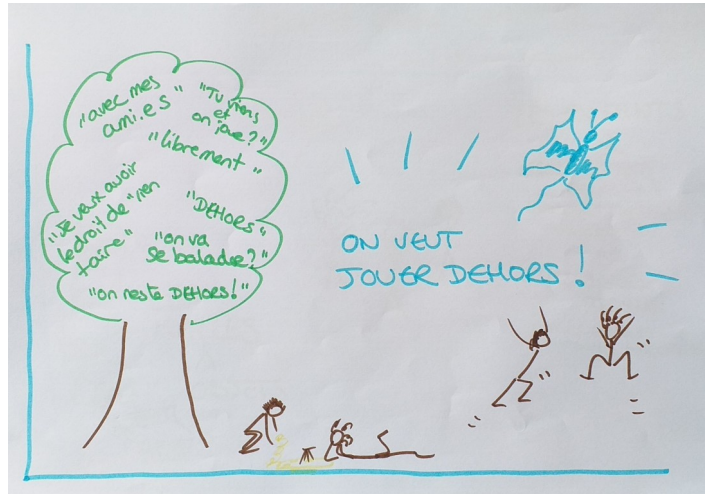 "avec mes
ami.es"
"Tu viens
et
on joue?"
"librement"
"Je veux avoir
le droit de "rien
faire"
"DEHORS"
"on va
se balader?"
"on reste DEHORS!"
ON VEUT
JOUER DEHORS !